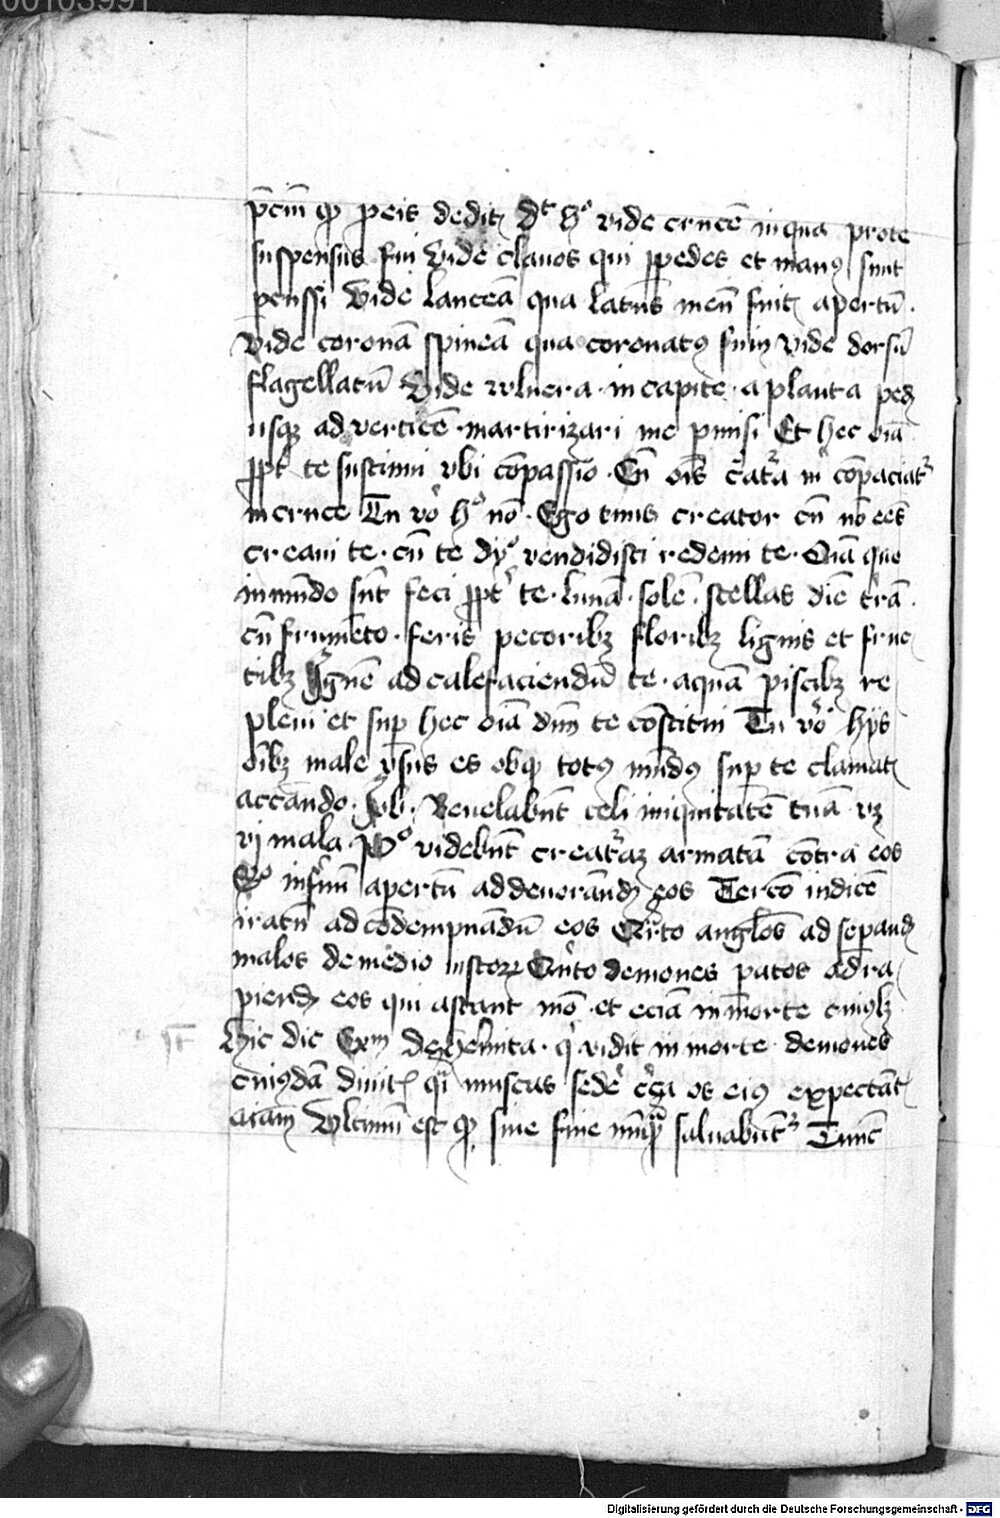 00103991
p̄ciū ꝙ p̲eis dedit Dt̄ ho vide crucē in qua pro te
suspensus fui Vide clavos qui ꝑ pedes et manꝰ sunt
ꝑcussi Vide lanceā qua latus meū fuit apertū .
Vide coronā spineā qua coronatꝰ fui vide dorsū
flagellatū Vide vulnera . in capite . a planta ped
usqꝫ ad verticē . martirizari me p̲misi Et hec oīa
ꝓpt te sustinui vbi cōpassio . Cū oīs c̄atᵃra m̄ cōpaciat
in cruce Tu vo ho nō . Ego tuus creator cū nō ees
creavi te . cū te dyo vendidisti redemi te . Oīa que
in mūdo sūt feci ꝓpt te . lunā . solē . stellas diē trā .
cū frumēto . feris pecoribꝫ floribꝫ lignis et fruc
tibꝫ Ignē ad calefaciendū te . aquā piscibꝫ re
plevi et suꝑ hec oīa dūm te cōstitui Tu vo hijs
oībꝫ male vsus es ob ꝙ totꝰ mūdꝰ suꝑ te clamat
accāndo . Job . Revelabūt celi iniquitatē tuā . vꝫ
vj mala po videbūt creatᵃrā armatā cōtra eos
2o infnū apertū ad devorand eos Tercō iudicē
iratū ad cōdempnādū eos Qrto anglos ad seꝑand
malos de medio iustoꝝ Qnto demones patos ad ra
piend eos qui astant mō . et eciā in morte cuiꝰlꝫ
Hic dic Exm de hēmita . q vidit in morte demones
cuiꝰdā divit qͥ muscas sedē cͥca os eiꝰ expectāt
aīam Vltimū est ꝙ sine fine nūqᵃ salvabūt Tūc
Digitalisierung gefördert durch die Deutsche Forschungsgemeinschaft - DFG